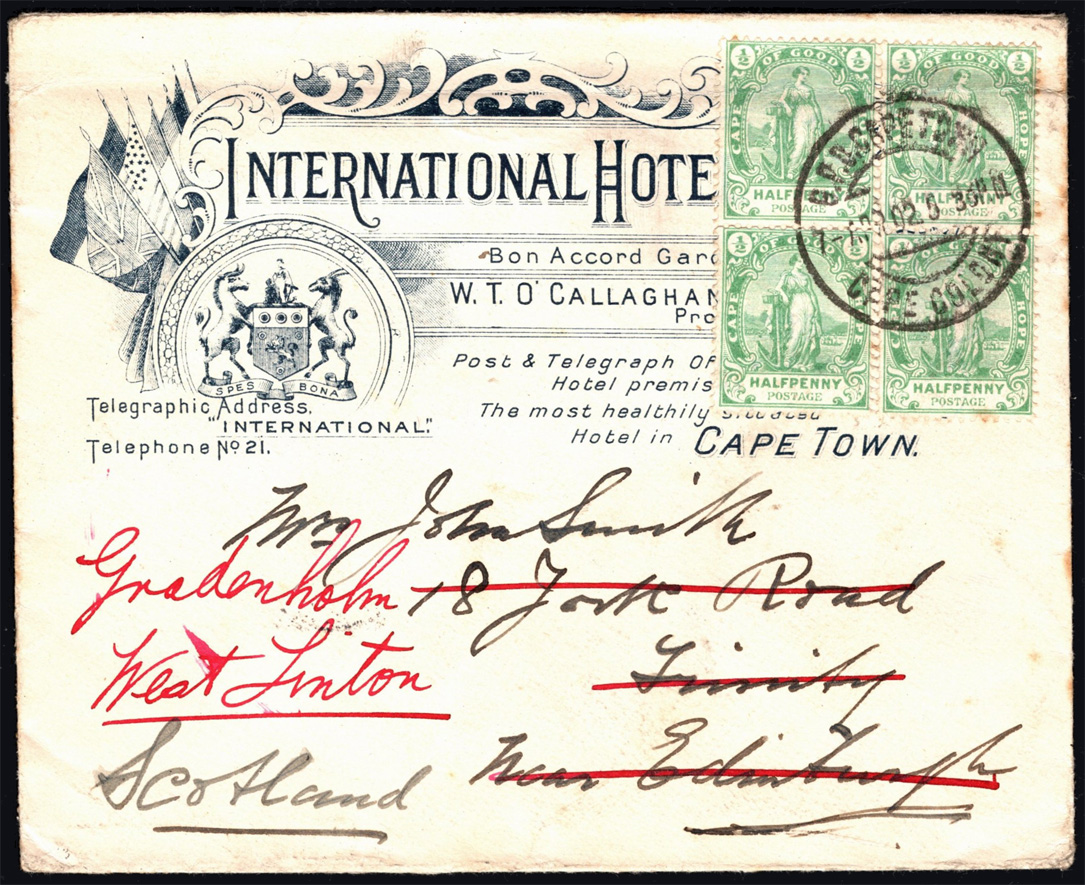 INTERNATIONAL HOTE
Bon Accord Gar
W. T. O'CALLAGHAN
Pro
Post & Telegraph Of
Hotel premis
The most healthily situated
Hotel in CAPE TOWN.
SPES BONA
Telegraphic Address.
"INTERNATIONAL".
Telephone No 21.
½ OF GOOD ½
CAPE
HALFPENNY
POSTAGE
½ OF GOOD ½
HOPE
HALFPENNY
POSTAGE
½ OF GOOD
CAPE
HALFPENNY
POSTAGE
½
HOPE
HALFPENNY
POSTAGE
G.P.O. CAPE TOWN
02
CAPE COLONY
Mrs John Smith
18 York Road
Trinity
Near Edinburgh
Gradenholm
West Linton
Scotland